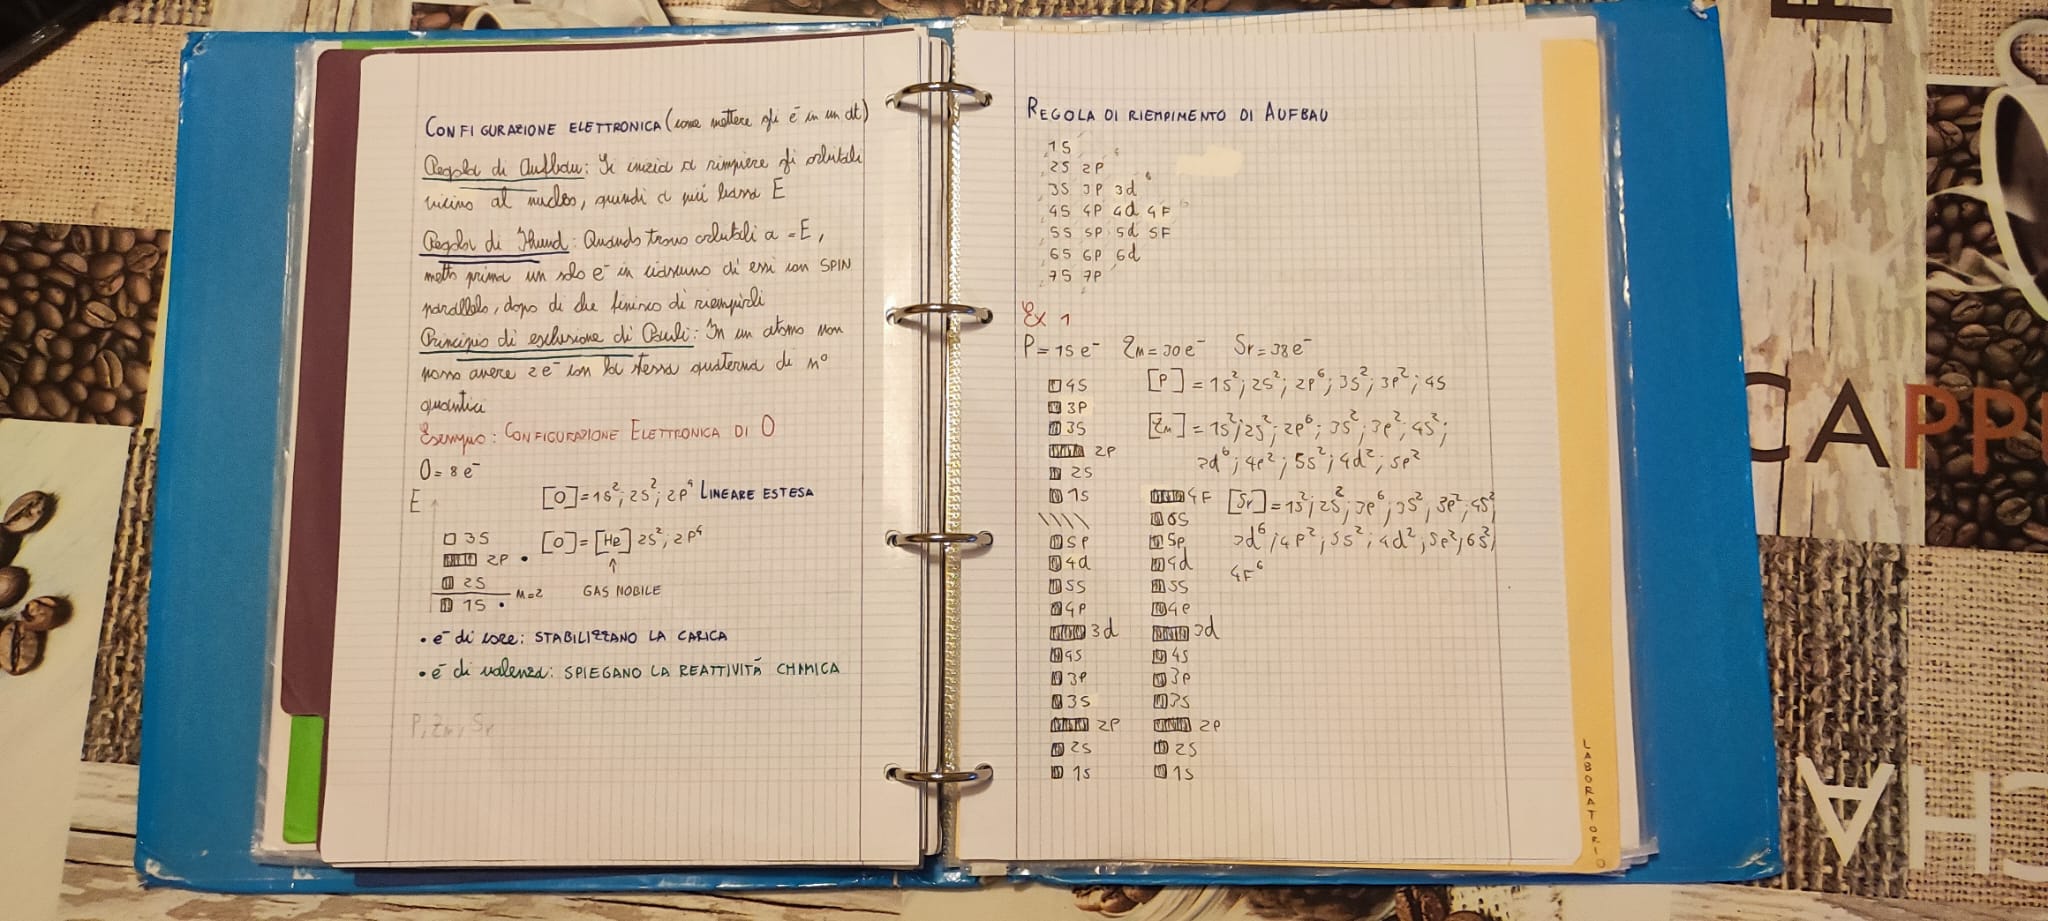 CONFIGURAZIONE ELETTRONICA (come mettere gli e⁻ in un at)
Regola di Aufbau: Si inizia a rimpiere gli orbitali
vicino al nucleo, quindi a più bassa E
Regola di Hund: Quando trovo orbitali a = E,
metto prima un solo e⁻ in ciascuno di essi con SPIN
parallelo, dopo di che finisco di riempirli
Principio di esclusione di Pauli: In un atomo non
posso avere 2 e⁻ con la stessa quaterna di n°
quantici
Esempio: CONFIGURAZIONE ELETTRONICA DI O
O = 8 e⁻
E
[O] = 1s²; 2s²; 2p⁴ LINEARE ESTESA
3S
[O] = [He] 2s²; 2p⁴
2P •
2S
n=2
GAS NOBILE
1S •
• e⁻ di core: STABILIZZANO LA CARICA
• e⁻ di valenza: SPIEGANO LA REATTIVITÁ CHIMICA
P, Zn, Sr
REGOLA DI RIEMPIMENTO DI AUFBAU
1S
2S 2P
3S 3P 3d
4S 4P 4d 4F
5S 5P 5d 5F
6S 6P 6d
7S 7P
Ex 1
P = 15 e⁻ Zn = 30 e⁻ Sr = 38 e⁻
4S
[P] = 1s²; 2s²; 2p⁶; 3s²; 3p²; 4s
3P
3S
[Zn] = 1s²; 2s²; 2p⁶; 3s²; 3p²; 4s²;
2P
3d⁶; 4p²; 5s²; 4d²; 5p²
2S
1S
4F
[Sr] = 1s²; 2s²; 3p⁶; 3s²; 3p²; 4s²;
6S
5P 5P
3d⁶; 4p²; 5s²; 4d²; 5p²; 6s²;
4d 4d
4F⁶
5S 5S
4P 4P
3d 3d
4S 4S
3P 3P
3S 3S
2P 2P
2S 2S
1S 1S
LABORATORIO
CAPP
CHA